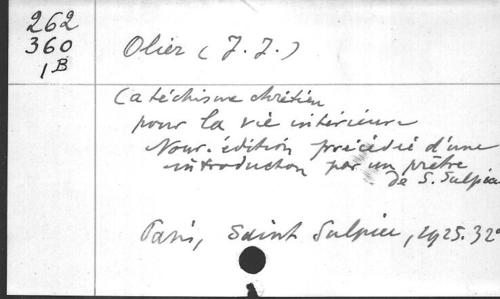 262
360
1B
Olier (J. J.)
Catéchisme chrétien
pour la vie intérieure
Nouv. édition précédée d'une
introduction par un prêtre
de S. Sulpice
Paris, Saint Sulpice, 1925. 32°